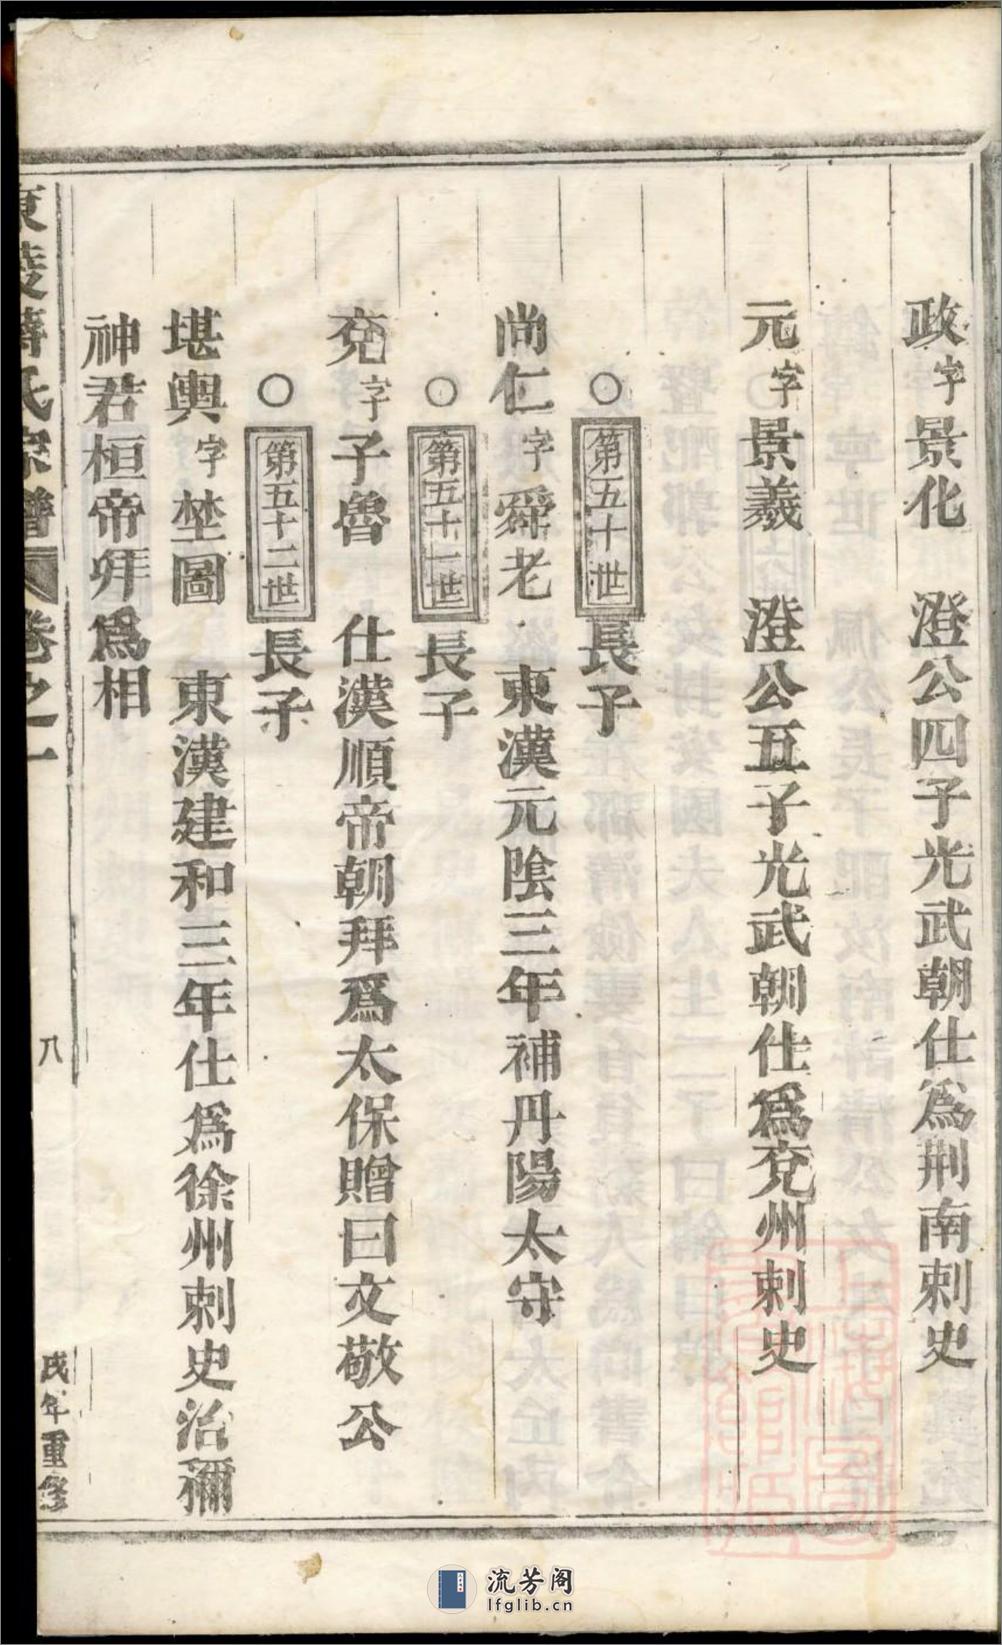 政字景化　澄公四子光武朝仕爲荆南刺史
元字景羲　澄公五子光武朝仕爲兗州刺史
○第五十世長子
尚仁字舜老　東漢元陰三年補丹陽太守
○第五十一世長子
兗字子魯　仕漢順帝朝拜爲太保贈曰文敬公
○第五十二世長子
堪輿字埜圖　東漢建和三年仕爲徐州刺史治稱
神君桓帝拜爲相
氏宗譜　卷之一　八　戌年重修
流芳阁
lfglib.cn